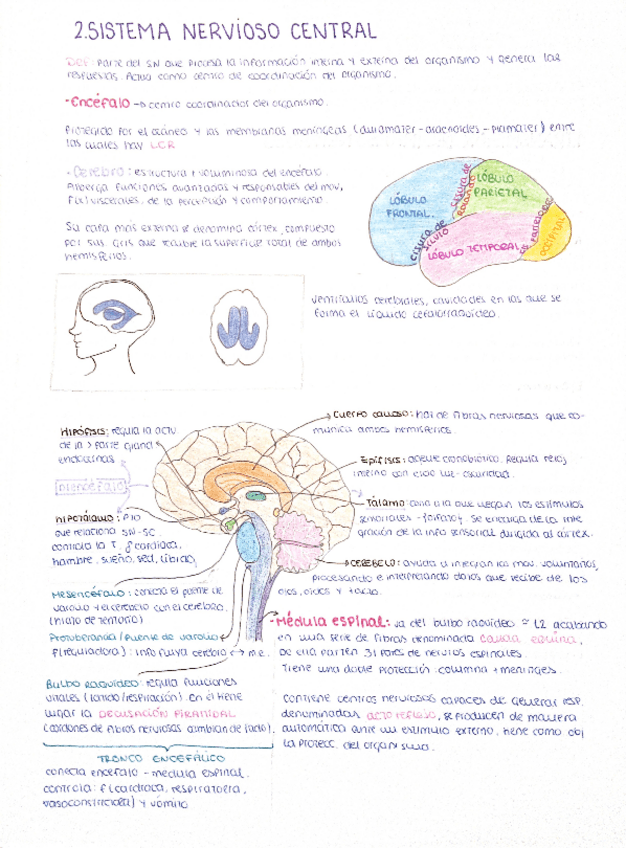 2.SISTEMA NERVIOSO CENTRAL
DEF: Parte del SN que procesa la información interna y externa del organismo y genera las
respuestas. Actúa como centro de coordinación del organismo.
-Encéfalo → centro coordinador del organismo.
Protegido por el cráneo y las membranas meníngeas (duramater-aracnoides-piamater) entre
las cuales hay LCR
-Cerebro: estructura + voluminosa del encéfalo.
Alberga funciones avanzadas y responsables del mov,
F(x) viscerales, de la percepción y comportamiento.
Su capa más externa se denomina córtex, compuesto
por sus. Gris que recubre la superficie total de ambos
hemisferios.
LÓBULO
FRONTAL.
cisura de
Rolando
LÓBULO
PARIETAL
cisura de
silvio
LÓBULO TEMPORAL
OCCIPITAL
ventrículos cerebrales, cavidades en las que se
forma el líquido cefalorraquídeo.
Cuerpo calloso: haz de fibras nerviosas que co-
munica ambos hemisferios.
Hipófisis: regula la actv.
de la > parte gland.
endocrinas
Epífisis: ajuste cronobiótico. Regula reloj
interno con ciclo luz-oscuridad.
DIENCÉFALO
Tálamo: área a la que llegan los estímulos
sensoriales se encarga de la inte
gración de la info sensorial dirigida al córtex.
hipotálamo:
que relaciona SN-SC.
controla la T, cardíaca,
hambre, sueño, sed, libido,
CEREBELO: ayuda a integrar los mov. voluntarios,
procesando e interpretando datos que recibe de los
ojos, oídos y tacto.
Mesencéfalo: conecta el puente de
varolio y el cerebelo con el cerebro.
Protuberancia/puente de varolio
F(reguladora): info fluya cerebro ↔ M.E.
-Médula espinal: va del bulbo raquídeo ≈ L2 acabando
en una serie de fibras denominada cauda equina,
De ella parten 31 pares de nervios espinales.
Tiene una doble protección: columna + meninges.
Bulbo raquídeo: regula funciones
vitales (latido/respiración). en él tiene
lugar la DECUSACIÓN PIRAMIDAL
(cordones de fibros nerviosas cambian de lado).
Contiene centros nerviosos capaces de generar resp.
denominadas acto reflejo, se producen de manera
automática ante un estímulo externo, tiene como obj
la protecc. del organismo.
TRONCO ENCEFÁLICO
conecta encéfalo - médula espinal.
controla: F(cardíaca, respiratoria,
vasoconstrictora) y vómito